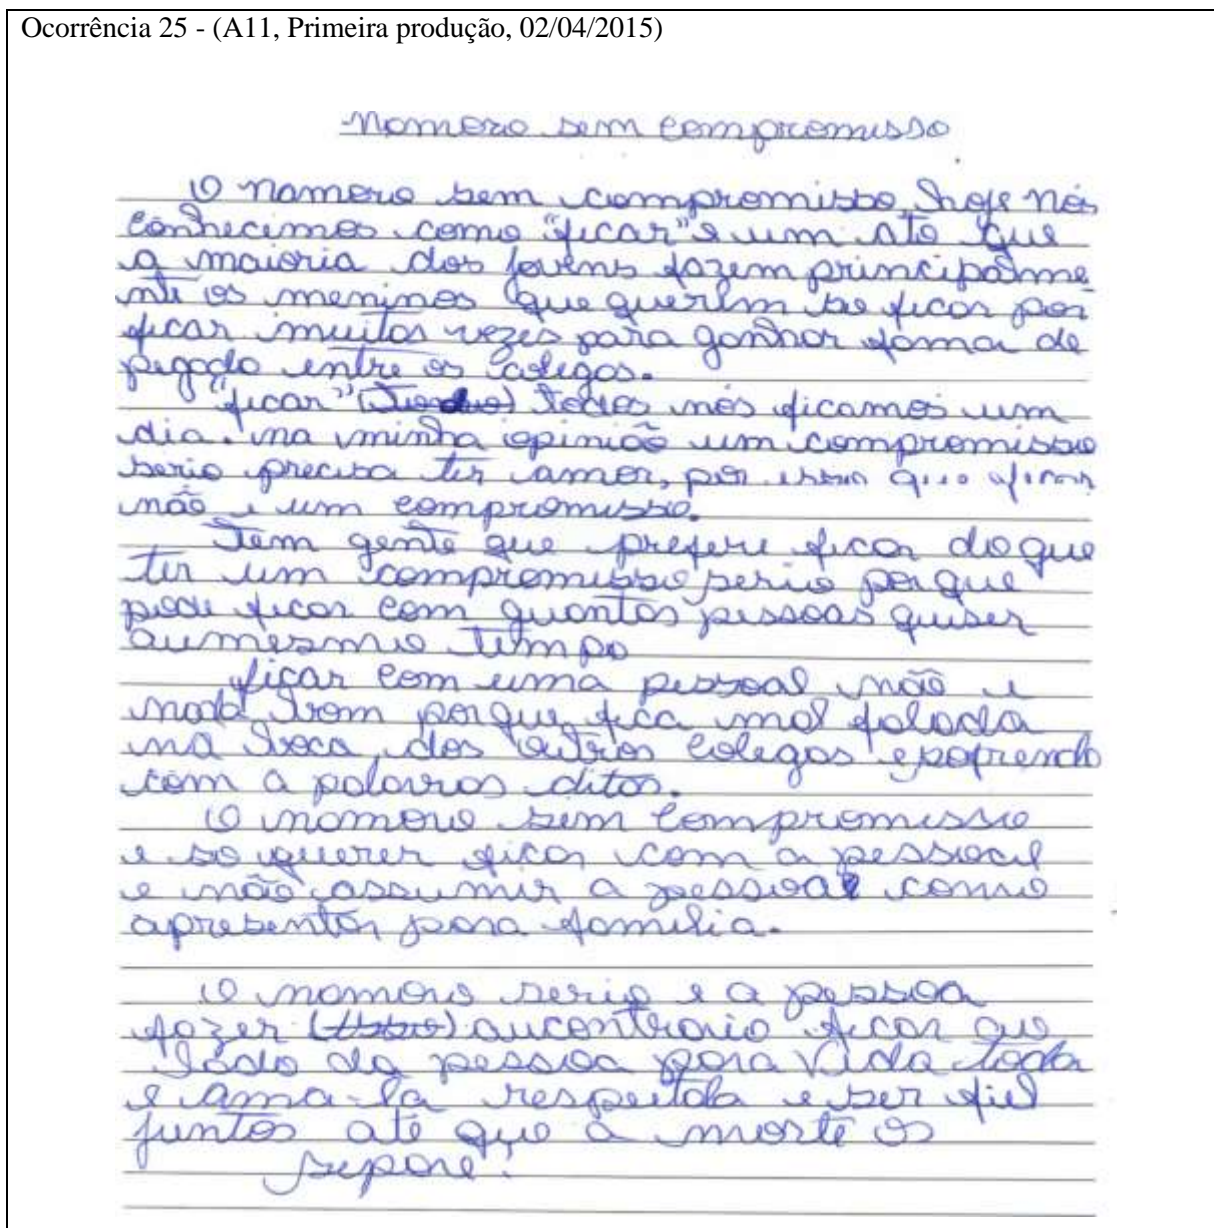 Ocorrência 25 - (A11, Primeira produção, 02/04/2015)
Namoro sem compromisso
O namoro sem compromisso, hoje nós
conhecimos como "ficar" e um ato que
a maioria dos jovens fazem principalme
nte os meninos que querem so ficar por
ficar muitas vezes para ganhar fama de
pegado entre os colegos.
"ficar" todos nós ficamos um
dia. na minha opinião um compromisso
serio precisa ter amor, por isso que ficar
não e um compromisso.
Tem gente que prefere ficar doque
ter um compromisso serio porque
pode ficar com quantas pessoas quiser
aumesmo tempo
ficar com uma pessoal não e
nada bom porque fica mal falada
na boca dos outros colegas
com a palavras ditas.
O namoro sem compromisso
e so querer ficar com a pessoal
e não assumir a pessoa como
apresentar para familia.
O namoro serio e a pessoa
fazer aucontrario ficar ao
lado da pessoa para vida toda
e ama-la respeitala e ser fiel
juntos até que a morte os
separe!